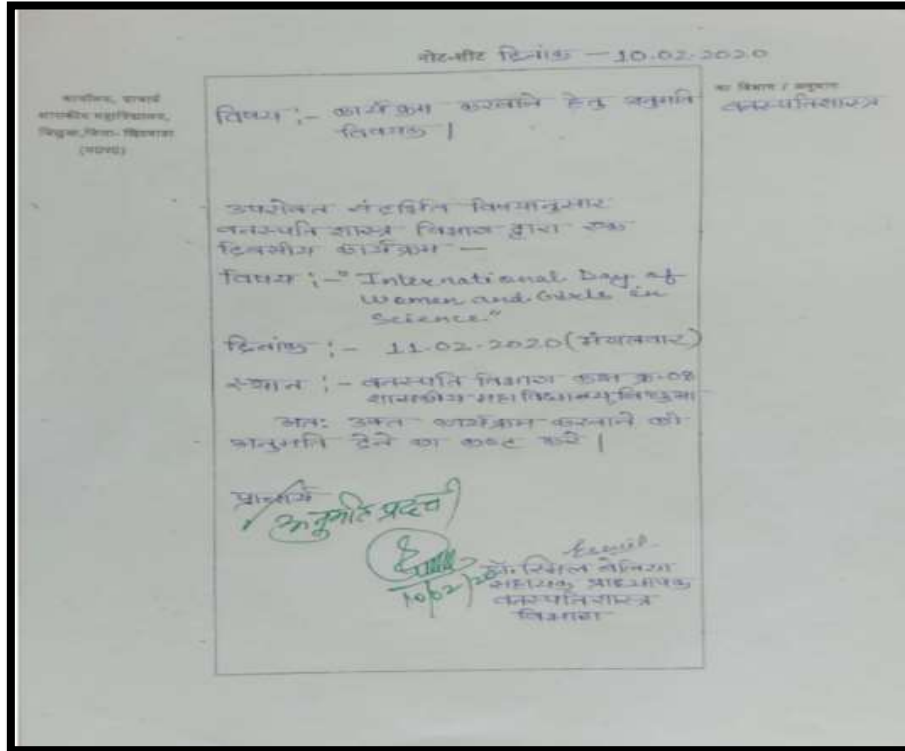 नोट-शीट दिनांक — 10.02.2020
कार्यालय, प्राचार्य
शासकीय महाविद्यालय,
जिला-
(म०प्र०)
का विभाग / अनुभाग
वनस्पतिशास्त्र
विषय :- कार्यक्रम करवाने हेतु अनुमति
विषयक |
उपरोक्त संदर्भित विषयानुसार
वनस्पति शास्त्र विभाग द्वारा एक
दिवसीय कार्यक्रम —
विषय :- "International Day of
Women and Girls in
Science."
दिनांक :- 11-02-2020 (मंगलवार)
स्थान :- वनस्पति विभाग कक्ष क्र-08
शासकीय महाविद्यालय
अतः उक्त कार्यक्रम करवाने की
अनुमति देने का कष्ट करे |
प्राचार्य
अनुमति प्रदत्त
10/02/20
डॉ.
सहायक प्राध्यापक
वनस्पतिशास्त्र
विभाग